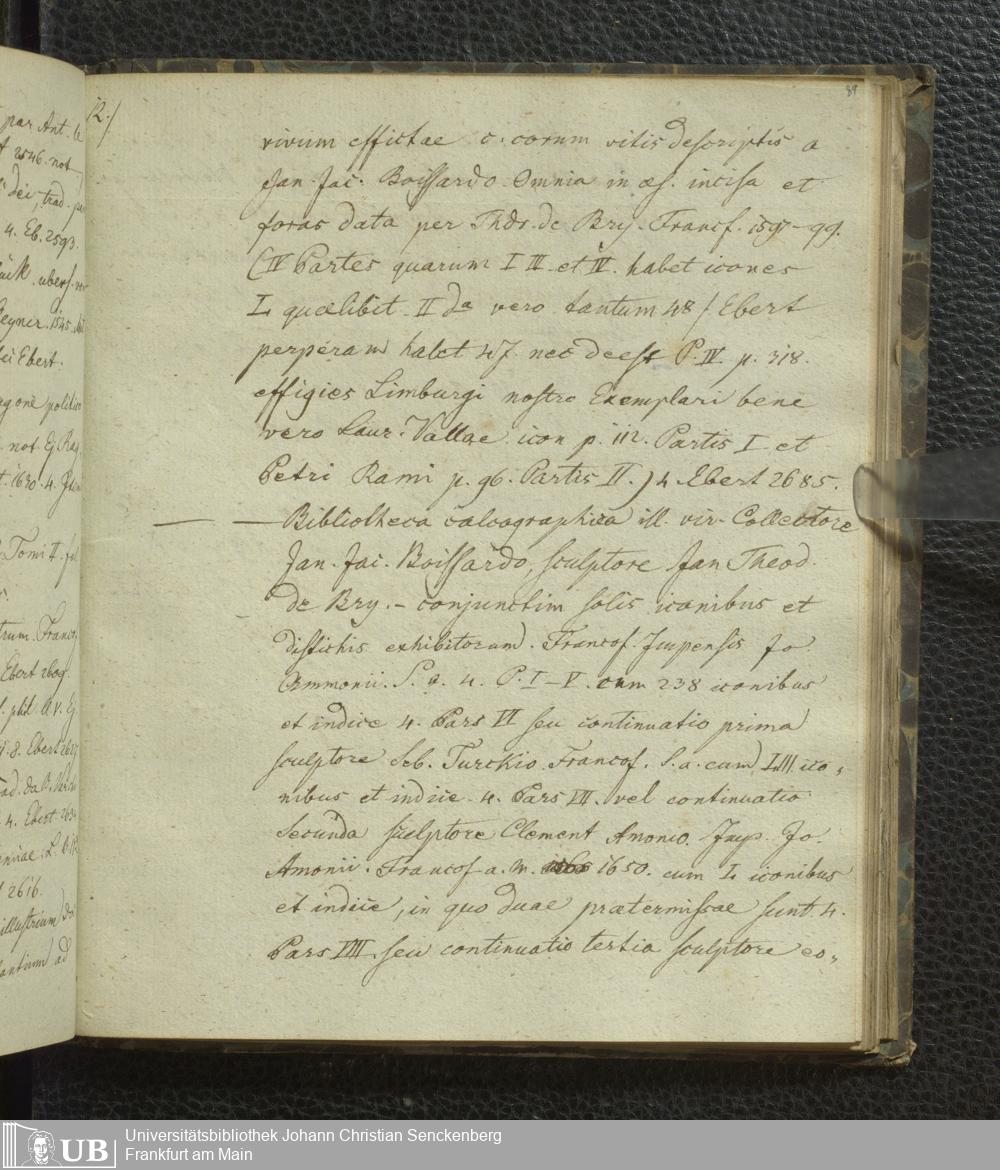 par Ant. le
2546. not
dei, trad. par
4. Eb. 2593.
Ebert.
politico
not. Ej. Rag.
1630. 4.
Tomi II. fol
Francof.
Ebert 2609.
8. Ebert
4. Ebert
2616.
illustrium
ad
12./
89
vivum effictae c. eorum vitis descriptis a
Jan. Jac. Boissardo. Omnia in æs. incisa et
foras data per Thdr. de Bry. Francf. 1597–99.
(IV Partes quarum I III et IV. habet icones
L quælibet II da vero tantum 48 / Ebert
perperam habet 47 nec deest P. IV p. 318.
effigies Limburgi nostro Exemplari bene
vero Laur. Vallae icon p. 112. Partis I et
Petri Rami p. 96. Partis II.) 4. Ebert 2685.
— — Bibliotheca calcographica ill. vir. Collectore
Jan. Jac. Boissardo, sculptore Jan Theod.
de Bry. – conjunctim solis iconibus et
distichis exhibitorum. Francof. Impensis Jo
Ammonii. S. a. 4. P. I–V. cum 238 iconibus
et indice 4. Pars VI seu continuatio prima
sculptore Seb. Furckio. Francof. S. a. cum LIII ico„
nibus et indice 4. Pars VII. vel continuatio
secunda sculptore Clement Amonio. Imp. Jo.
Amonii. Francof. a. M. 1650. cum L iconibus
et indice, in quo duae prætermissae sunt. 4.
Pars VIII seu continuatio tertia sculptore eo„
UB
Universitätsbibliothek Johann Christian Senckenberg
Frankfurt am Main